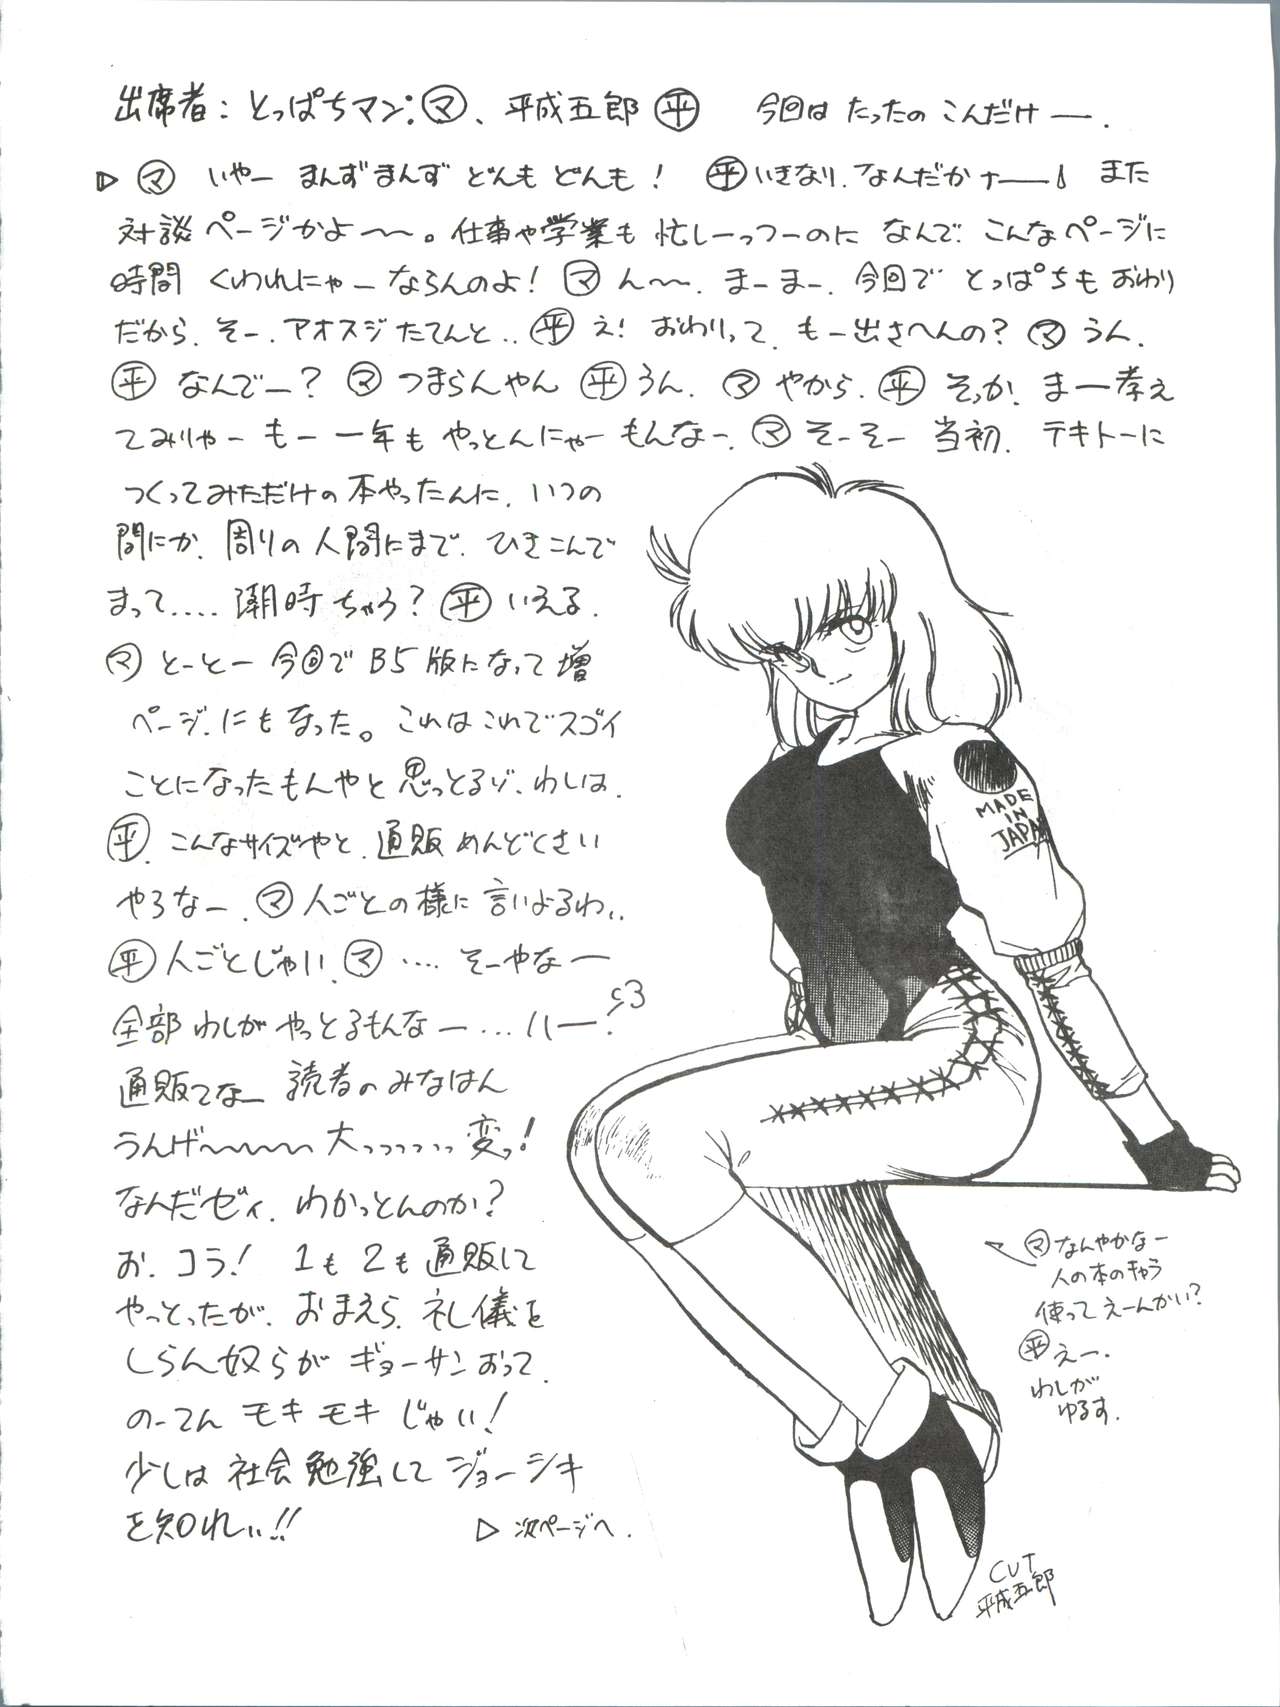 出席者：とっぱちマン：㋮、平成五郎㊄ 今回は たったの こんだけ―.
▷ ㋮ いやー まんずまんず どんも どんも！ ㊄いきなり、なんだかナ――！ また
対談ページかよ～～。仕事や学業も 忙しーっつーのに なんで、こんなページに
時間 くわれにゃー ならんのよ！ ㋮ ん～～、まーまー、今回で とっぱちも おわり
だから、そー、アオスジたてんと‥ ㊄ え！ おわりって、もー出さへんの？ ㋮ うん、
㊄ なんでー？ ㋮ つまらんやん ㊄ うん、 ㋮ やから、㊄ そっか、まー考え
てみりゃー もー 一年も やっとんにゃー もんなー、㋮ そーそー 当初、テキトーに
つくってみただけの本やったんに、いつの
間にか、周りの人間にまで、ひきこんで
まって‥‥ 潮時 ちゃう？ ㊄ いえる、
㋮ とーとー 今回で B5版になって 増
ページ、にもなった。これはこれでスゴイ
ことになったもんやと 思っとるゾ、わしは、
㊄、こんなサイズやと、通販めんどくさい
やろなー、㋮ 人ごとの様に 言いよるわい、
㊄ 人ごとじゃい、㋮ ‥‥ そーやなー
全部 わしがやっとるもんなー… ハー！
通販てなー 読者のみなはん
うんげ～～～～ 大っっっっっ変っ！
なんだゼィ、わかっとんのか？
お、コラ！ 1も2も通販して
やっとったが、おまえら、礼儀を
しらん奴らが ギョーサンおって、
のーてん モキモキ じゃい！
少しは 社会勉強して ジョーシキ
を知れい！！ ▷ 次ページへ.
MADE
IN
JAPA
㋮ なんやかなー
人の本のキャラ
使って えーんかい？
㊄ えー、
わしが
ゆるす.
CUT
平成五郎